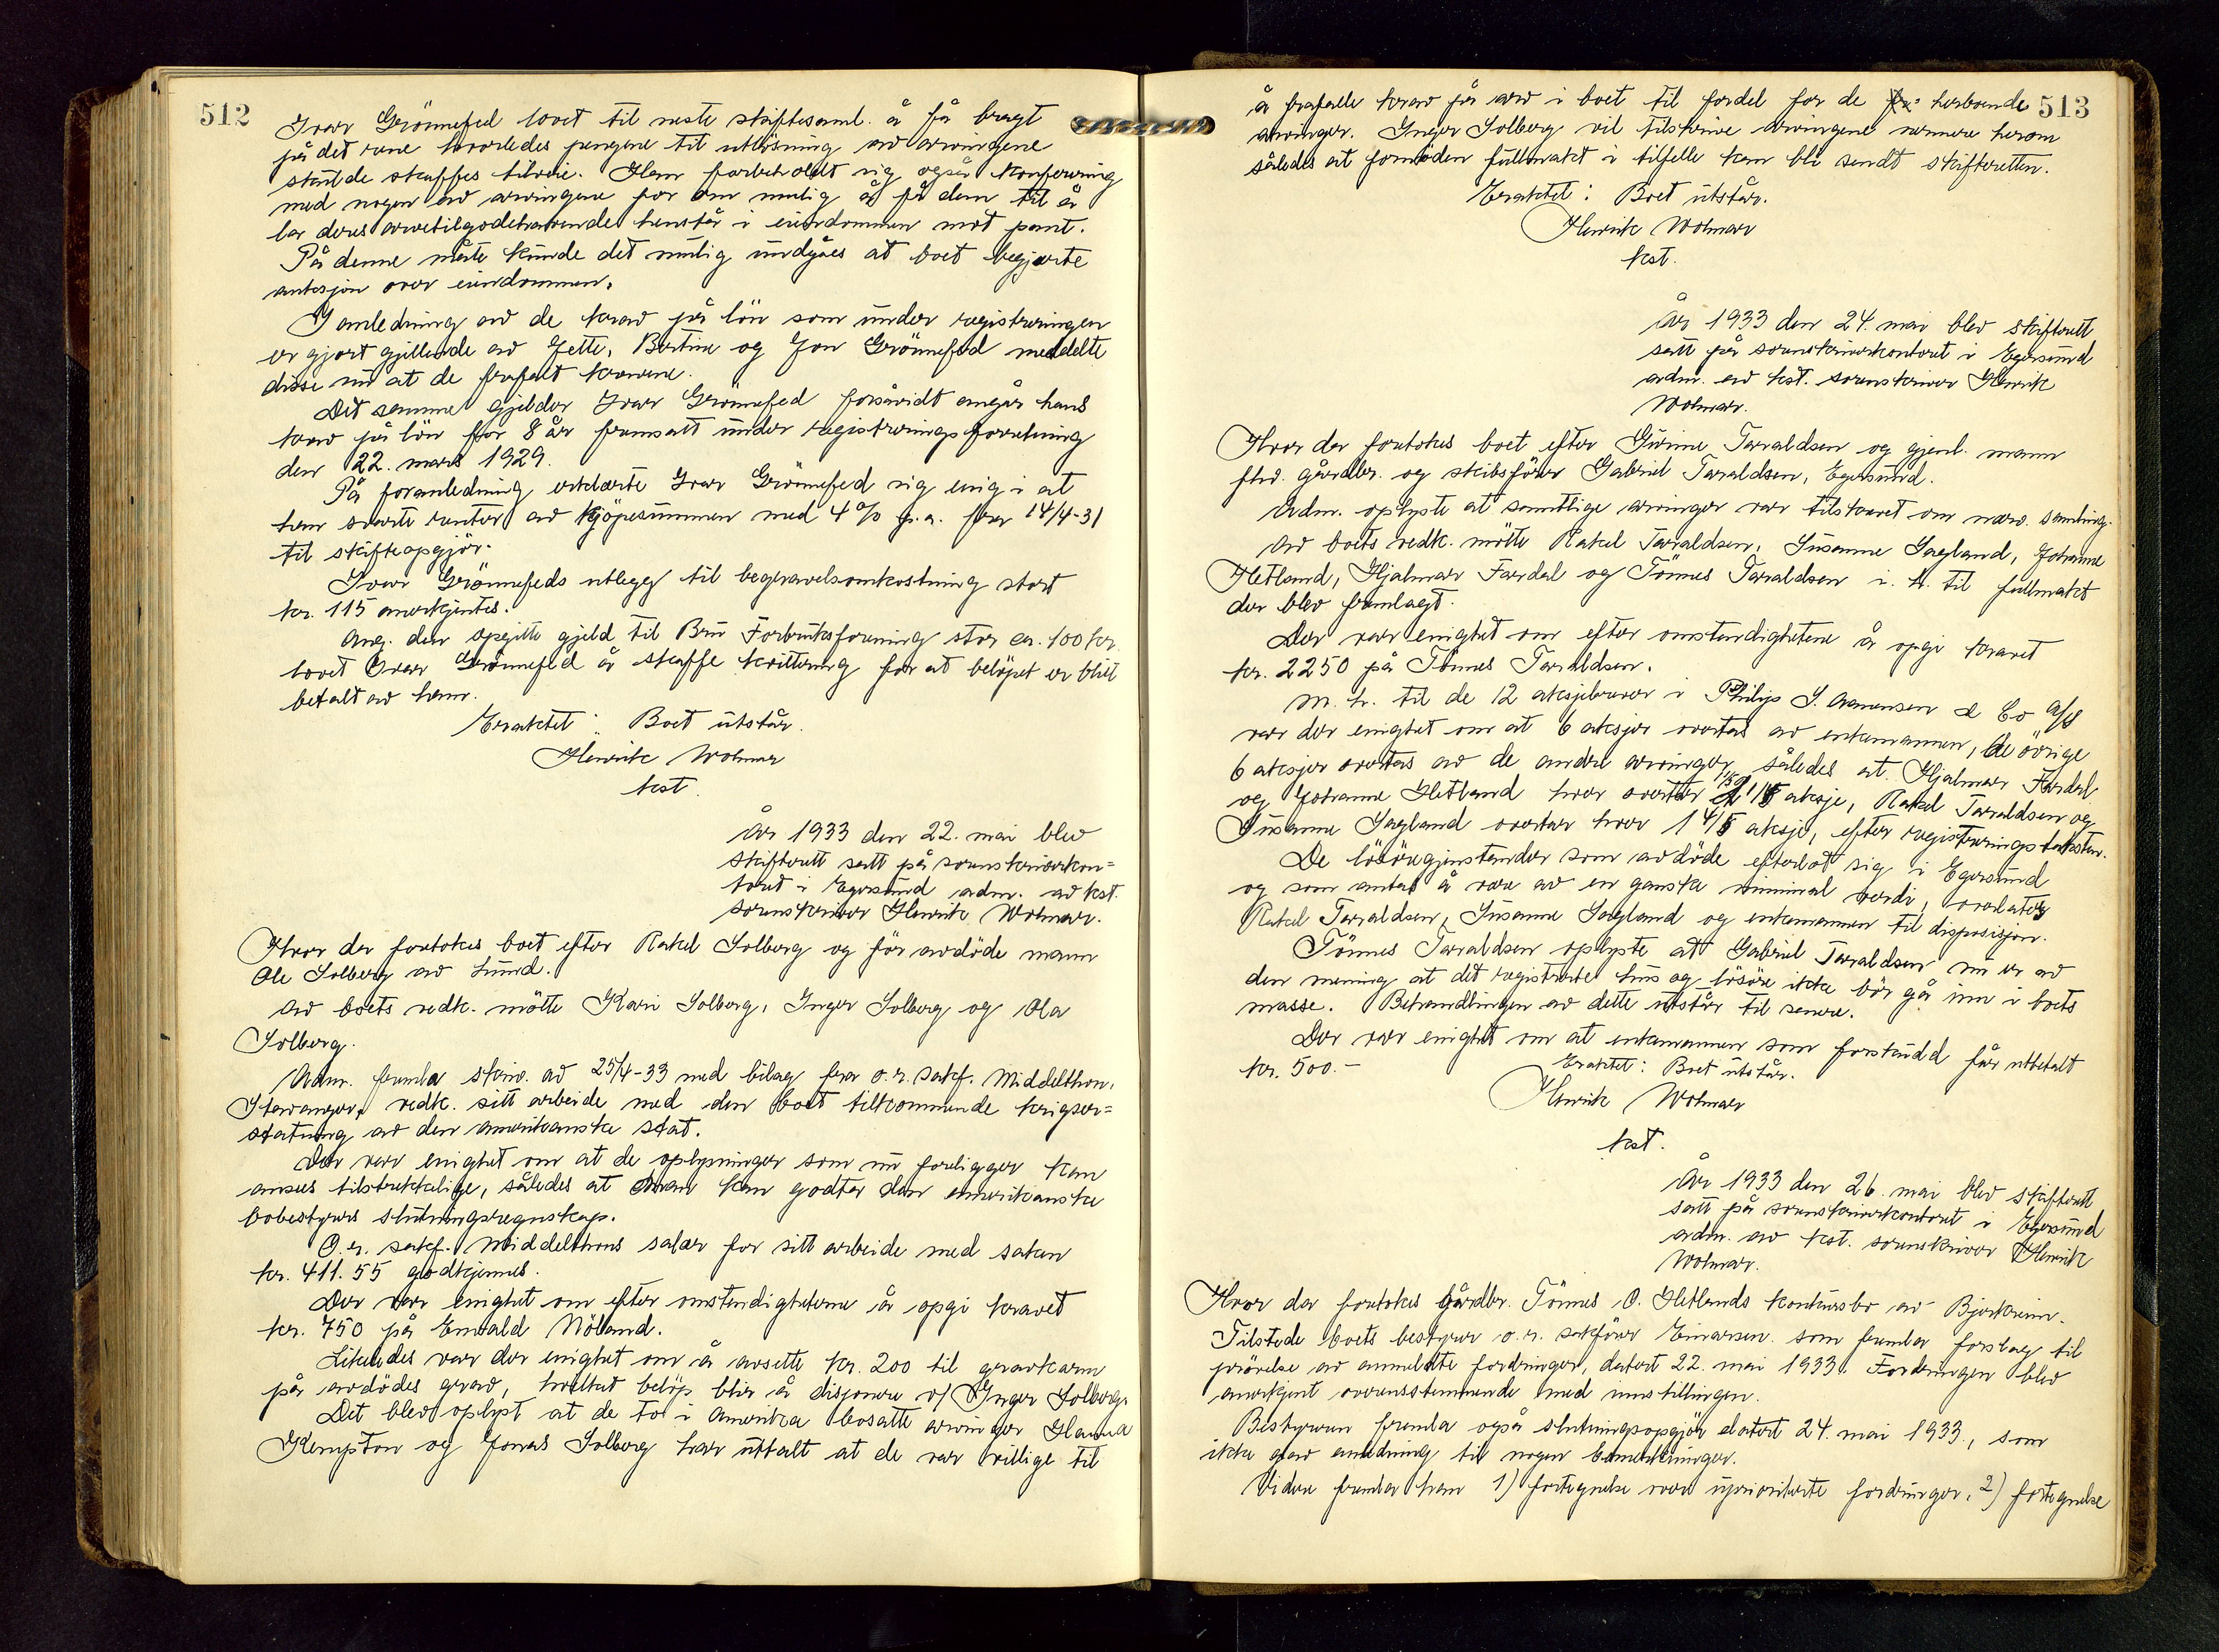 512
Ivar Grönnefed lovet til neste skiftesaml. å få bragt
på det rene hvorledes pengene til utlösning av arvingene
skulde skaffes tilveie. Han forbeholdt sig også konferering
med nogen av arvingene for om mulig å få dem til å
la deres arvetilgodehavende henstå i eiendommen mot pant.
På denne måte kunde det mulig undgåes at boet begjærte
auksjon over eiendommen.
I anledning av de krav på lön som under registreringen
er gjort gjeldende av Jette, Bertine og Jon Grönnefed meddelte
disse nu at de frafalt kravene.
Det samme gjelder Ivar Grönnefed forsåvidt angår hans
krav på lön for 8 år fremsatt under registreringsforretning
den 22. mars 1929.
På foranledning erklærte Ivar Grönnefed sig enig i at
han svarte renter av kjöpesummen med 4% p.a. fra 14/4-31
til skifteopgjör.
Ivar Grönnefeds utlegg til begravelsomkostning stort
kr. 115 anerkjentes.
Ang. den opgitte gjeld til Bru Forbruksforening stor ca. 100 kr.
lovet Ivar Grönnefed å skaffe kvittering for at belöpet er blitt
betalt av ham.
Eraktet: Boet utstår.
Henrik Wolmar
kst.
År 1933 den 22. mai blev
skifterett satt på sorenskriverkon=
toret i Egersund adm. av kst.
sorenskriver Henrik Wolmar.
Hvor da foretokes boet efter Rakel Solberg og för avdöde mann
Ole Solberg av Lund.
Av boets vedk. mötte Kari Solberg, Inger Solberg og Ola
Solberg.
Adm. fremla skriv. av 25/4-33 med bilag fra o.r.sakf. Middelthon,
Stavanger, vedk. sitt arbeide med den boet tilkommende krigser=
statning av den amerikanske stat.
Der var enighet om at de oplysninger som nu foreligger kan
ansees tilstrekkelige, således at man kan godta den amerikanske
bobestyrers slutningsregnskap.
O.r. sakf. Middelthons salær for sitt arbeide med saken
kr. 411.55 godkjennes.
Der var enighet om efter omstendighetene å opgi kravet
kr. 750 på Emvald Nöland.
Likeledes var der enighet om å avsette kr. 200 til gravkarm
på avdödes grav, hvilket belöp blir å disponere v/ Inger Solberg.
Det blev oplyst at de to i Amerika bosatte arvinger Hanna
Kempton og Jonas Solberg har uttalt at de var villige til
513
å frafalle krav på arv i boet til fordel for de herboende
arvinger. Inger Solberg vil tilskrive arvingene nærmere herom
således at fornöden fullmakt i tilfelle kan bli sendt skifteretten.
Eraktet: Boet utstår.
Henrik Wolmar
kst.
År 1933 den 24. mai blev skifterett
satt på sorenskriverkontoret i Egersund
adm. av kst. sorenskriver Henrik
Wolmar.
Hvor da foretokes boet efter Gurine Tarraldsen og gjenl. mann
fhv. gårdbr. og skibsförer Gabriel Tarraldsen, Egersund.
Adm. oplyste at samtlige arvinger var tilskrevet om nærv. samling.
Av boets vedk. mötte Rakel Tarraldsen, Susanne Sagland, Johanne
Hetland, Hjalmar Fardal og Tönnes Tarraldsen i. h. til fullmakt
der blev fremlagt.
Der var enighet om efter omstendighetene å opgi kravet
kr. 2250 på Tönnes Tarraldsen.
M. h. til de 12 aksjebrever i Philip S. Aanensen & Co A/S
var der enighet om at 6 aksjer overtas av enkemannen, de övrige
6 aksjer overtas av de andre arvinger således at Hjalmar Fardal
og Johanne Hetland hver overtar 1 1/5 aksje, Rakel Tarraldsen og
Susanne Sagland overtar hver 1 4/5 aksje, efter registreringstaksten.
De lösöregjenstander som avdöde efterlot sig i Egersund
og som antas å være av en ganske minimal verdi, overlates
Rakel Tarraldsen, Susanne Sagland og enkemannen til disposisjon.
Tönnes Tarraldsen oplyste at Gabriel Tarraldsen nu er av
den mening at det registrerte hus og lösöre ikke bör gå inn i boets
masse. Behandlingen av dette utstår til senere.
Der var enighet om at enkemannen som forskudd får utbetalt
kr. 500.-
Eraktet: Boet utstår.
Henrik Wolmar
kst.
År 1933 den 26. mai blev skifterett
satt på sorenskriverkontoret i Egersund
adm. av kst. sorenskriver Henrik
Wolmar.
Hvor da foretokes gårdbr. Tönnes O. Hetlands konkursbo av Bjerkreim.
Tilstede boets bestyrer o.r. sakförer Einarsen som fremla forslag til
prövelse av anmeldte fordringer, datert 22. mai 1933. Fordringen blev
anerkjent overensstemmende med innstillingen.
Bestyreren fremla også slutningsopgjör datert 24. mai 1933, som
ikke gav anledning til nogen bemerkninger.
Videre fremla han 1) fortegnelse over uprioriterte fordringer, 2) fortegnelse